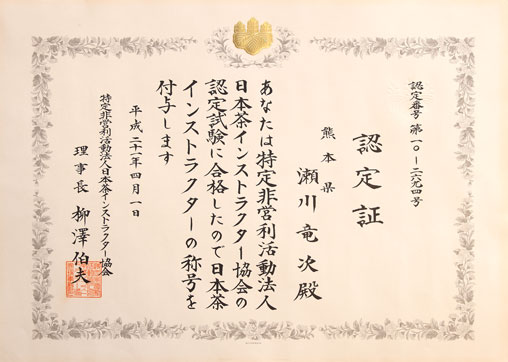 認定番号 第一〇－二六九四号
認定証
熊本県
瀬川竜次殿
あなたは特定非営利活動法人
日本茶インストラクター協会の
認定試験に合格したので日本茶
インストラクターの称号を
付与します
平成二十一年四月一日
特定非営利活動法人日本茶インストラクター協会
理事長 柳澤伯夫